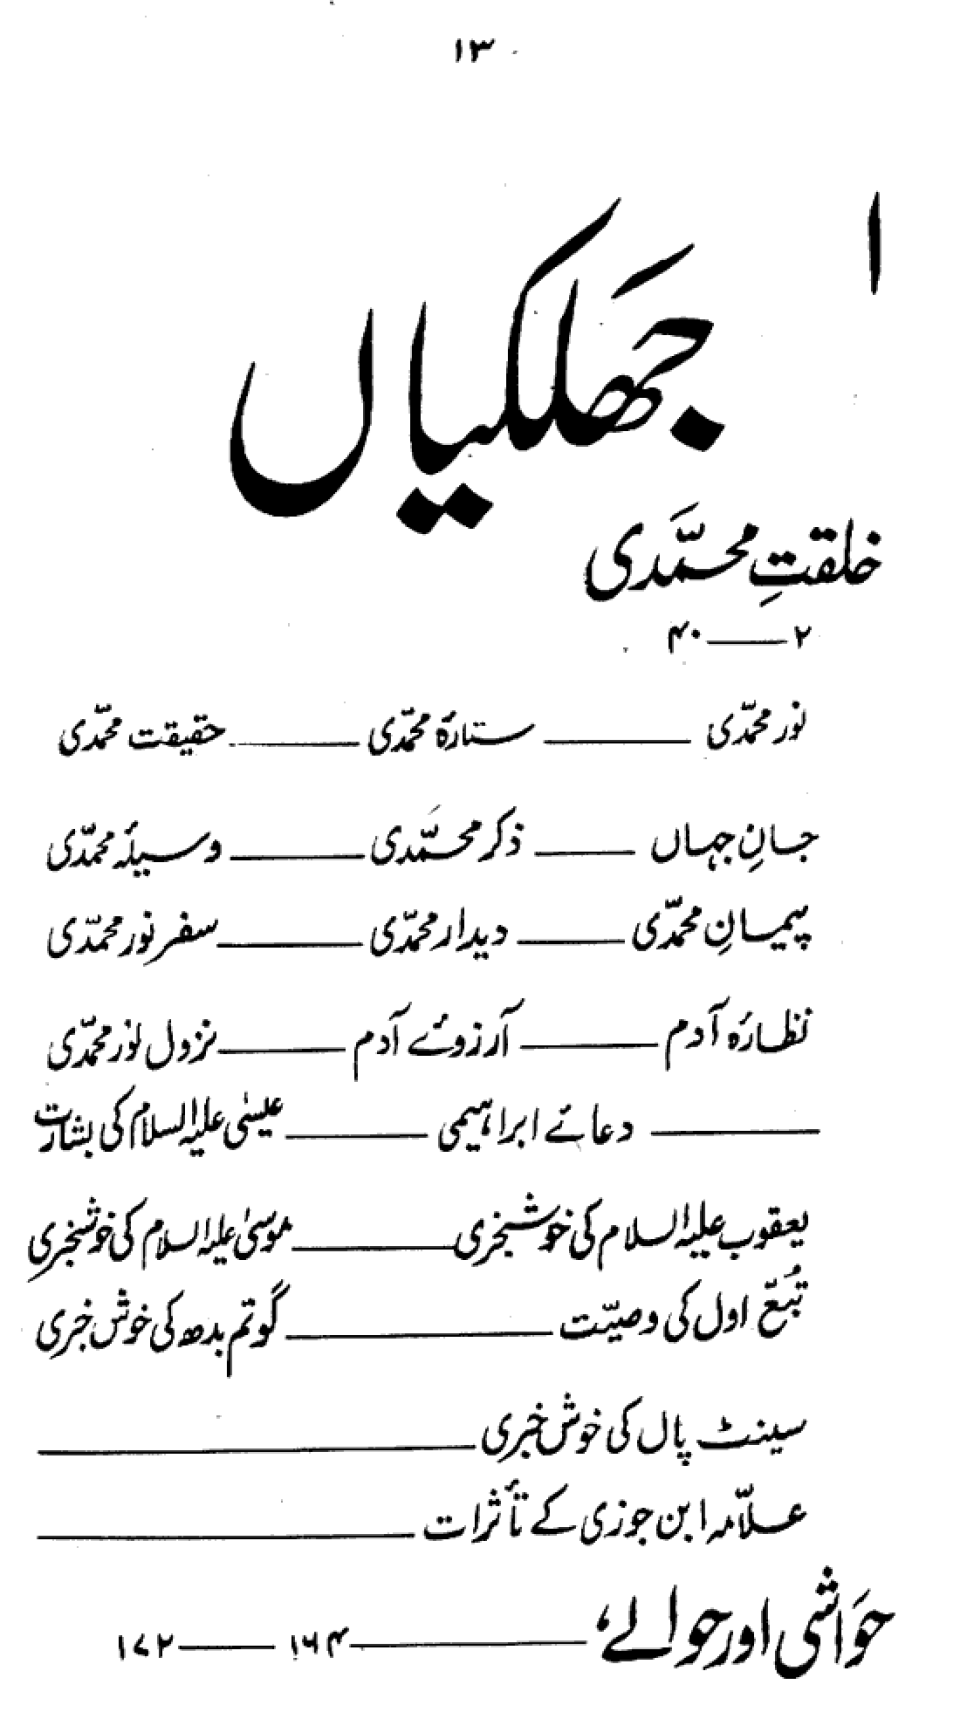 ۱۳
ا
جھلکیاں
خلقتِ محمَّدی
۲ ——— ۴۰
نور محمدّی ——— ستارۂ محمدّی ——— حقیقت محمدّی
جانِ جہاں ——— ذکر محمَّدی ——— وسیلۂ محمدّی
پیمانِ محمدّی ——— دیدار محمدّی ——— سفر نور محمدّی
نظارۂ آدم ——— آرزوئے آدم ——— نزول نور محمدّی
——— دعائے ابراہیمی ——— عیسیٰ علیہ السلام کی بشارت
یعقوب علیہ السلام کی خوشخبری ——— موسیٰ علیہ السلام کی خوشخبری
تُبّع اول کی وصیّت ——— گوتم بدھ کی خوش خبری
سینٹ پال کی خوش خبری ———
علاّمہ ابن جوزی کے تأثرات ———
حَواشی اور حوالے، ——— ۱۶۴ ——— ۱۷۲